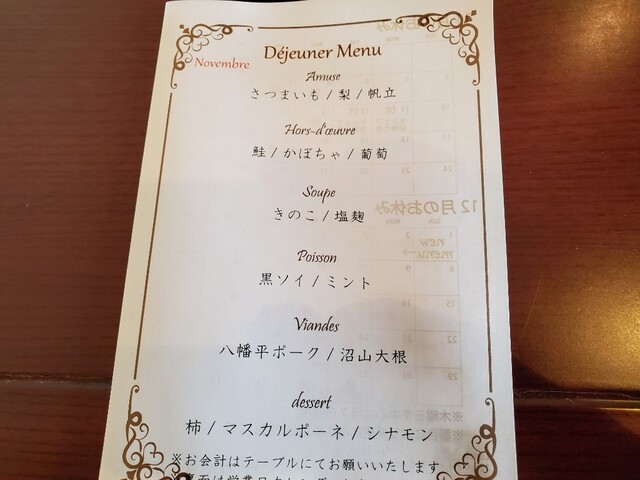 Déjeuner Menu
Novembre
Amuse
さつまいも / 梨 / 帆立
Hors-d'œuvre
鮭 / かぼちゃ / 葡萄
Soupe
きのこ / 塩麹
Poisson
黒ソイ / ミント
Viandes
八幡平ポーク / 沼山大根
dessert
柿 / マスカルポーネ / シナモン
※お会計はテーブルにてお願いいたします
12月のお休み
NEW
MENU